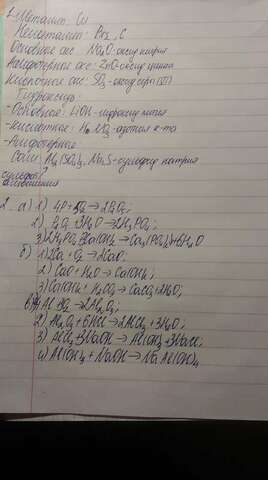 1. Металлы: Cu
Неметаллы: Br₂, C
Основные окс: Na₂O - оксид натрия
Амфотерные окс: ZnO - оксид цинка
Кислотные окс: SO₃ - оксид серы (VI)
Гидроксиды:
- Основные: LiOH - гидроксид лития
- Кислотные: H NO₂ - азотная к-та
- Амфотерные
Соли: Al₂(SO₄)₃, Na₂S - сульфид натрия
сульфат
алюминия
2. а) 1) 4P + 5O₂ → 2P₂O₅;
2) P₂O₅ + 3H₂O → 2H₃PO₄;
3) 2H₃PO₄ + 3Ca(OH)₂ → Ca₃(PO₄)₂ + 6H₂O
б) 1) 2Ca + O₂ → 2CaO;
2) CaO + H₂O → Ca(OH)₂;
3) Ca(OH)₂ + H₂CO₃ → CaCO₃ + 2H₂O;
в) 1) 4Al + 3O₂ → 2Al₂O₃;
2) Al₂O₃ + 6HCl → 2AlCl₃ + 3H₂O;
3) AlCl₃ + 3NaOH → Al(OH)₃ + 3NaCl;
4) Al(OH)₃ + NaOH → Na Al(OH)₄